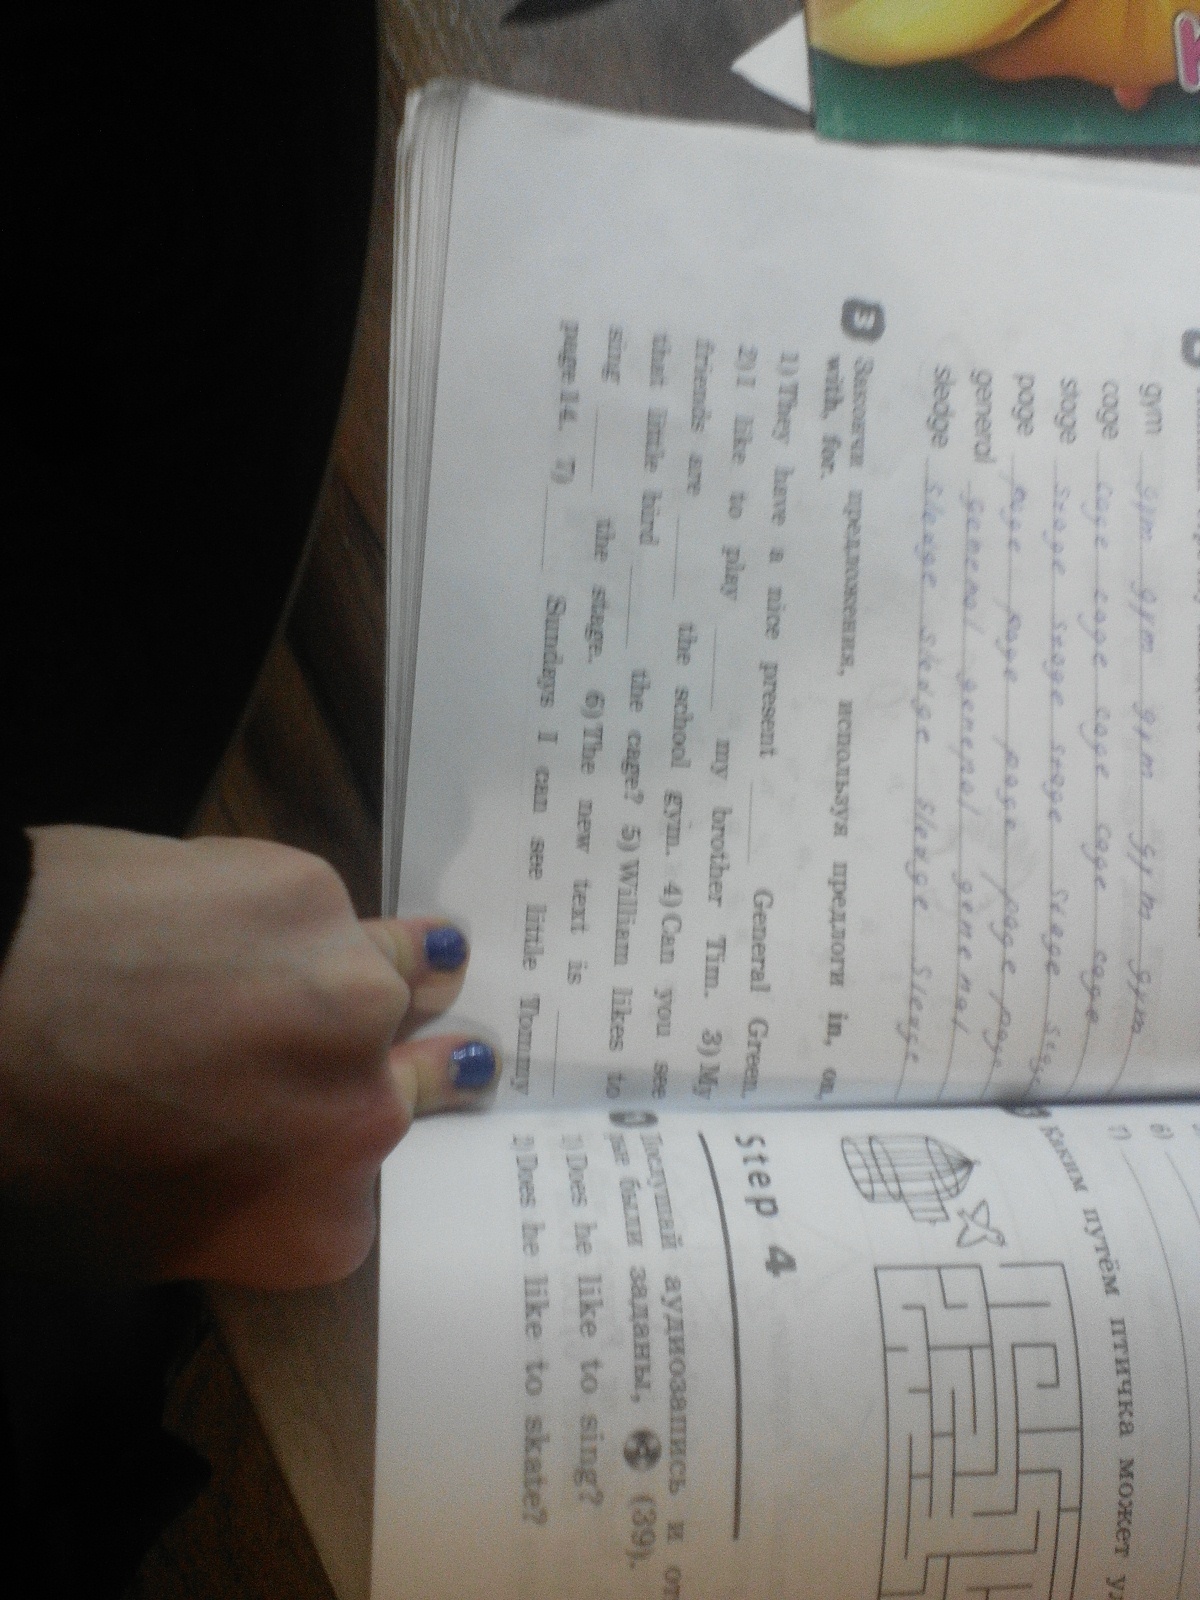 gym gym gym gym gym gym
cage cage cage cage cage cage
stage stage stage stage stage
page page page page page page
general general general general
sledge sledge sledge sledge sledge
3 Закончи предложения, используя предлоги in, on,
with, for.
1) They have a nice present ____ General Green.
2) I like to play ____ my brother Tim. 3) My
friends are ____ the school gym. 4) Can you see
that little bird ____ the cage? 5) William likes to
sing ____ the stage. 6) The new text is ____
page 14. 7) ____ Sundays I can see little Tommy
6)
7)
Каким путём птичка может
Step 4
Послушай аудиозапись и
были заданы, (39).
1) Does he like to sing?
2) Does he like to skate?